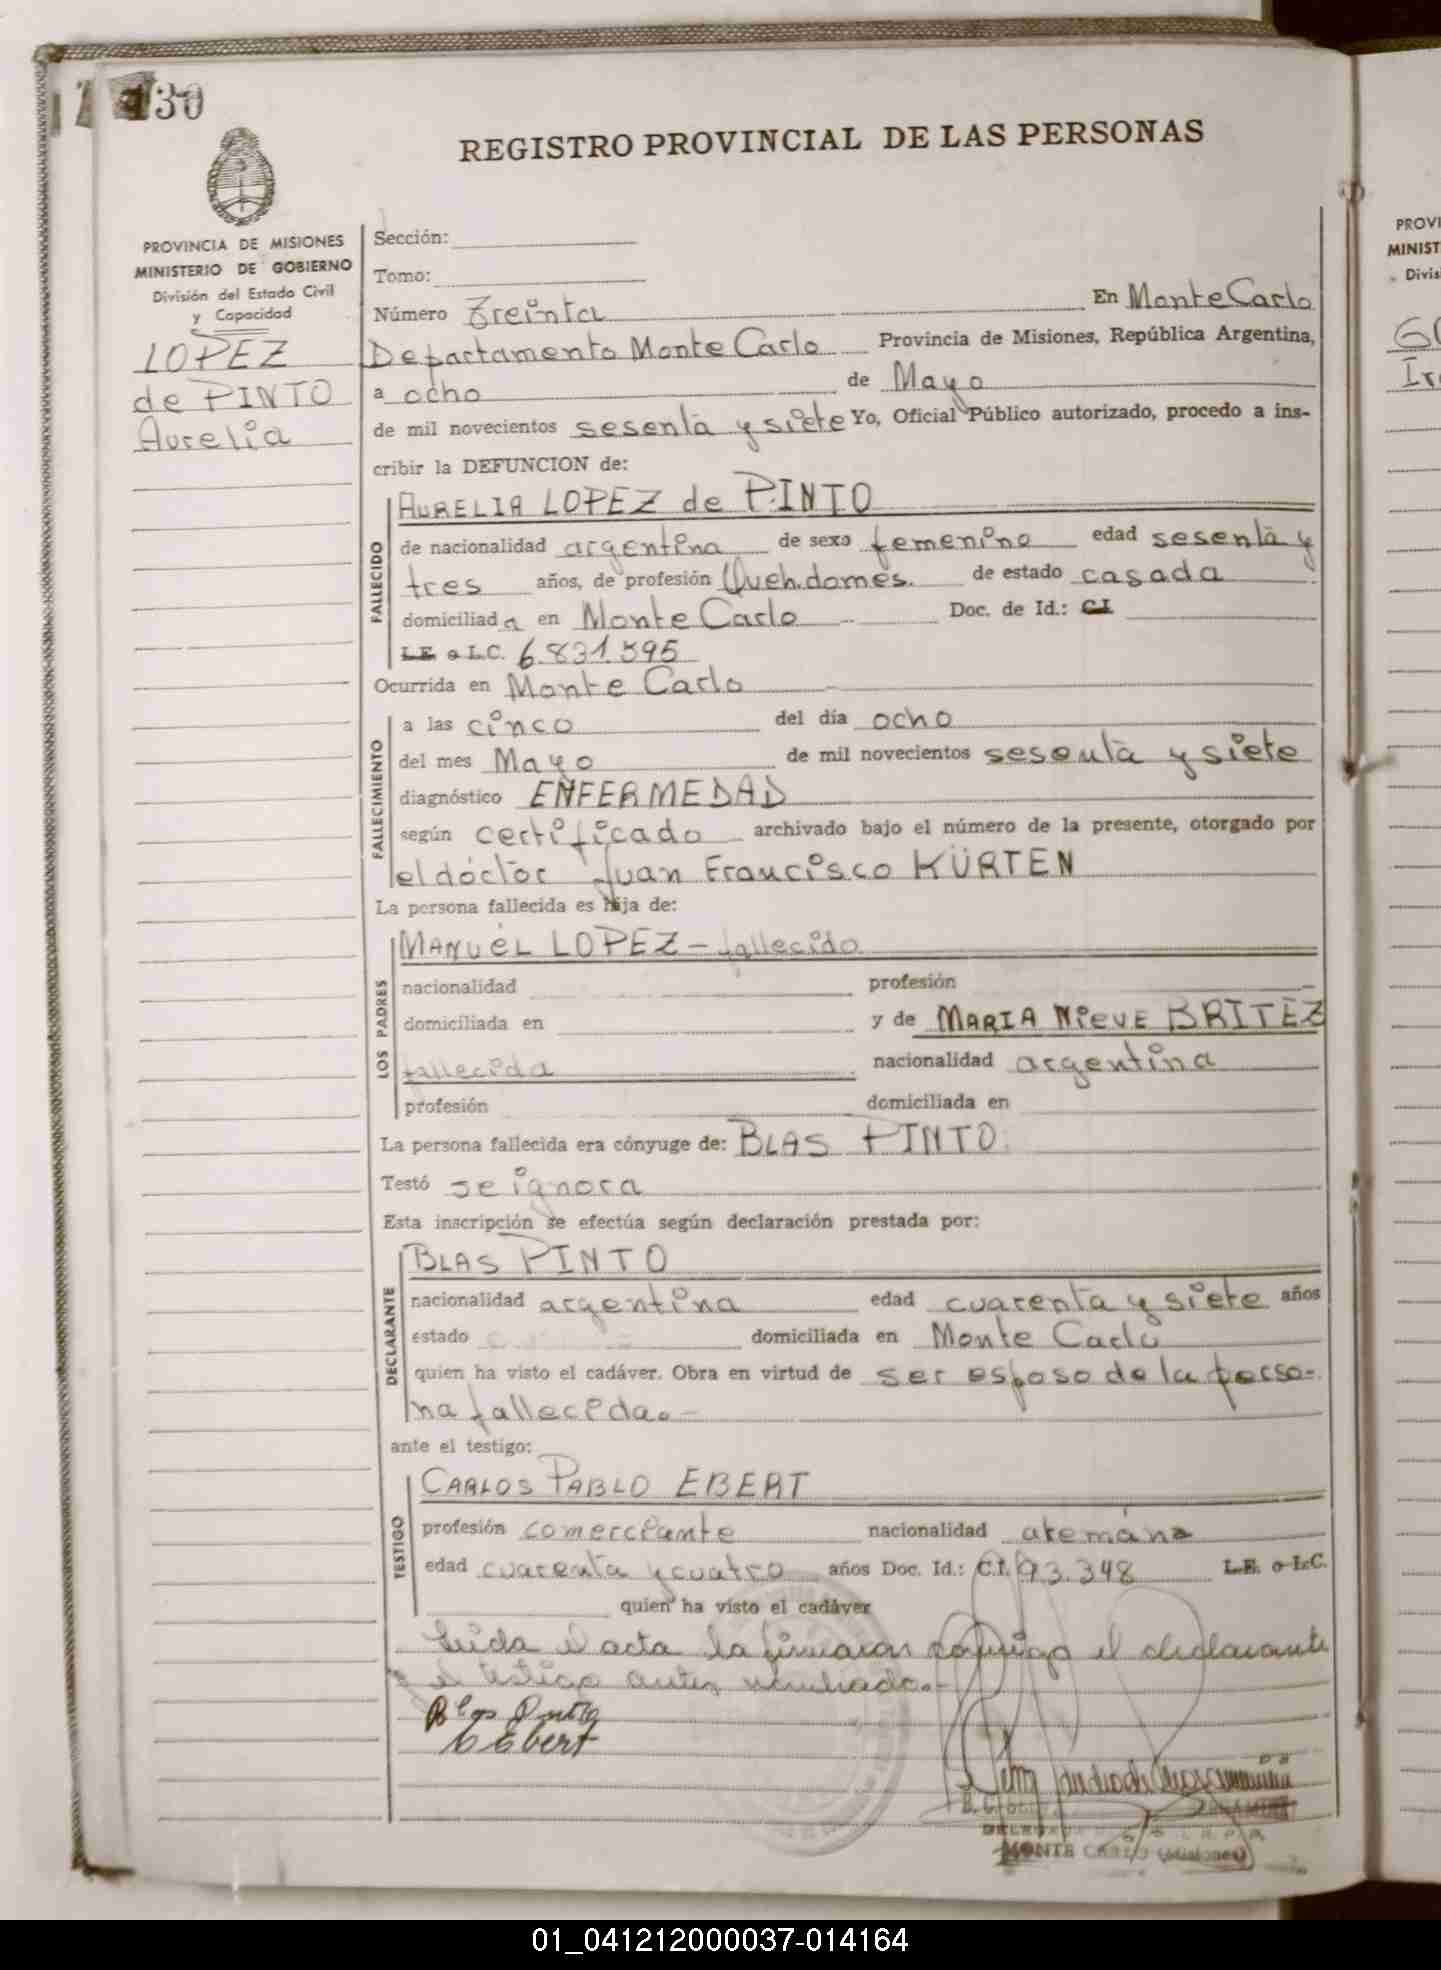 130
REGISTRO PROVINCIAL DE LAS PERSONAS
PROVINCIA DE MISIONES
MINISTERIO DE GOBIERNO
División del Estado Civil
y Capacidad
LOPEZ
de PINTO
Aurelia
Sección:
Tomo:
Número Treinta En Monte Carlo
Departamento Monte Carlo Provincia de Misiones, República Argentina,
a ocho de Mayo
de mil novecientos sesenta y siete Yo, Oficial Público autorizado, procedo a ins-
cribir la DEFUNCION de:
FALLECIDO
AURELIA LOPEZ de PINTO
de nacionalidad argentina de sexo femenino edad sesenta y
tres años, de profesión Queh.domes. de estado casada
domiciliada en Monte Carlo Doc. de Id.: CI
L.E. o L.C. 6.831.595
Ocurrida en Monte Carlo
FALLECIMIENTO
a las cinco del día ocho
del mes Mayo de mil novecientos sesenta y siete
diagnóstico ENFERMEDAD
según certificado archivado bajo el número de la presente, otorgado por
el doctor Juan Francisco KÜRTEN
La persona fallecida es hija de:
LOS PADRES
MANUEL LOPEZ - fallecido
nacionalidad profesión
domiciliada en y de MARIA NIEVE BRITEZ
fallecida nacionalidad argentina
profesión domiciliada en
La persona fallecida era cónyuge de: BLAS PINTO
Testó se ignora
Esta inscripción se efectúa según declaración prestada por:
DECLARANTE
BLAS PINTO
nacionalidad argentina edad cuarenta y siete años
estado domiciliada en Monte Carlo
quien ha visto el cadáver. Obra en virtud de ser esposo de la perso-
na fallecida.-
ante el testigo:
TESTIGO
CARLOS PABLO EBERT
profesión comerciante nacionalidad alemana
edad cuarenta y cuatro años Doc. Id.: C.I. 93.348 L.E. o L.C.
quien ha visto el cadáver
Leida el acta la firmaron conmigo el declarante
y el testigo antes nombrado.-
Blas Pinto
C Ebert
MONTE CARLO (Misiones)
PROVI
MINIST
Divis
01_041212000037-014164